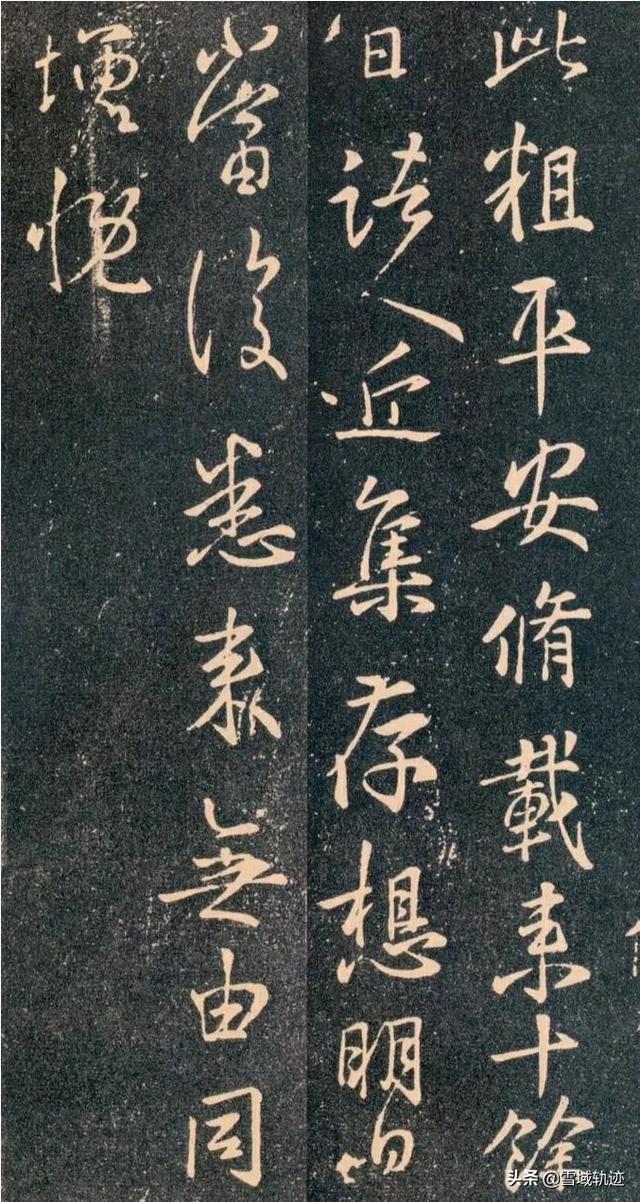 此粗平安脩載来十餘
日諸人近集存想明日
當復悉来無由同
增慨
头条 @雪域轨迹